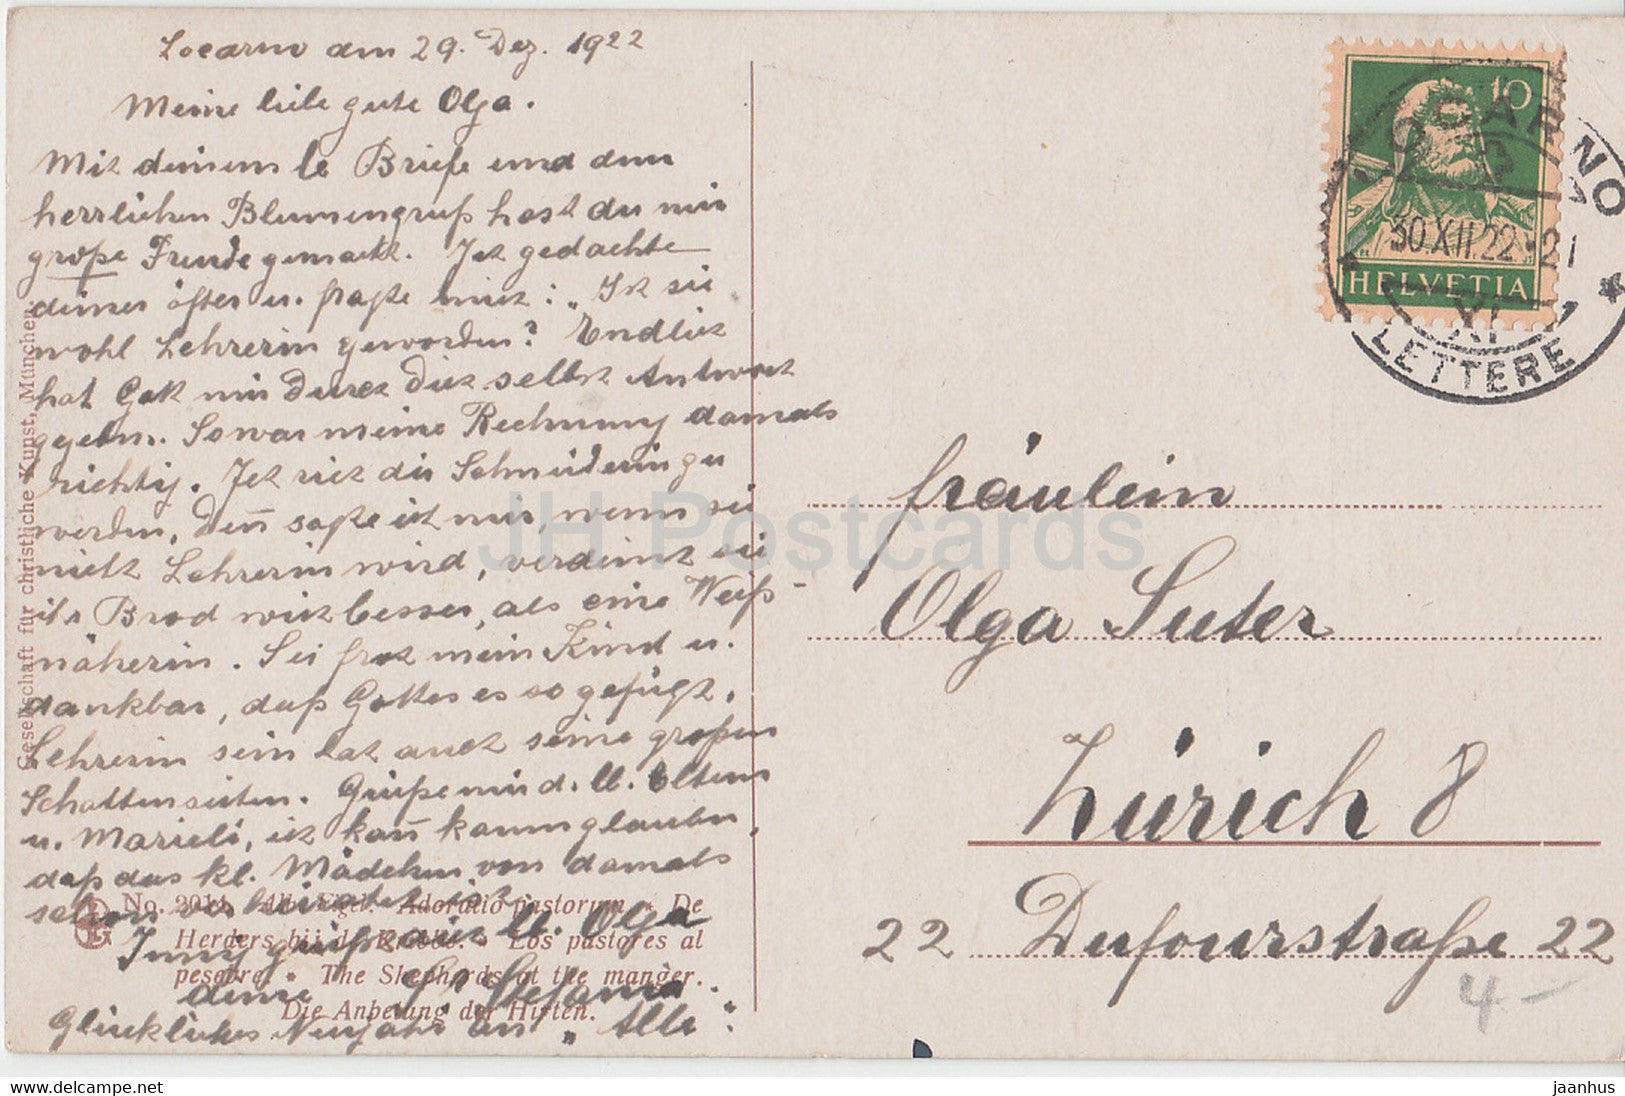 Locarno am 29. Dez. 1922
Meine liebe gute Olga.
Mit deinem lb Briefe und dem
herrlichen Blumengruß hast du mir
große Freude gemacht. Ich gedachte
deiner öfter u. fragte mich: „Ist sie
wohl Lehrerin geworden? Endlich
hat Gott mir durch dich selbst Antwort
gegeben. So war meine Rechnung damals
richtig. Ich riet dir Schneiderin zu
werden, deñ sagte ich mir, wenn sie
nicht Lehrerin wird, verdient sie
ihr Brod viel besser, als eine Weiß-
näherin. Sei froh mein Kind u.
dankbar, daß Gottes es so gefügt.
Lehrerin sein hat auch seine großen
Schattenseiten. Grüße mir d. lb. Eltern
u. Marieli, ich kañ kaum glauben,
daß das kl. Mädchen von damals
schon
Innig grüßt dich lb. Olga
deine Sr Stefania.
Glückliches Neujahr an „Alle".
Gesellschaft für christliche Kunst, München
No. 2014. Alb. Egli. Adoratio pastorum * De
Herders bij de Kribbe. * Los pastores al
pesebre * The Shepherds at the manger.
Die Anbetung der Hirten.
10
HELVETIA
LOCARNO
30.XII.22-21
XI
LETTERE
1
JH Postcards
fräulein
Olga Suter
Zürich 8
22 Dufourstraße 22
4-
www.hippostcard.com
jaanhus